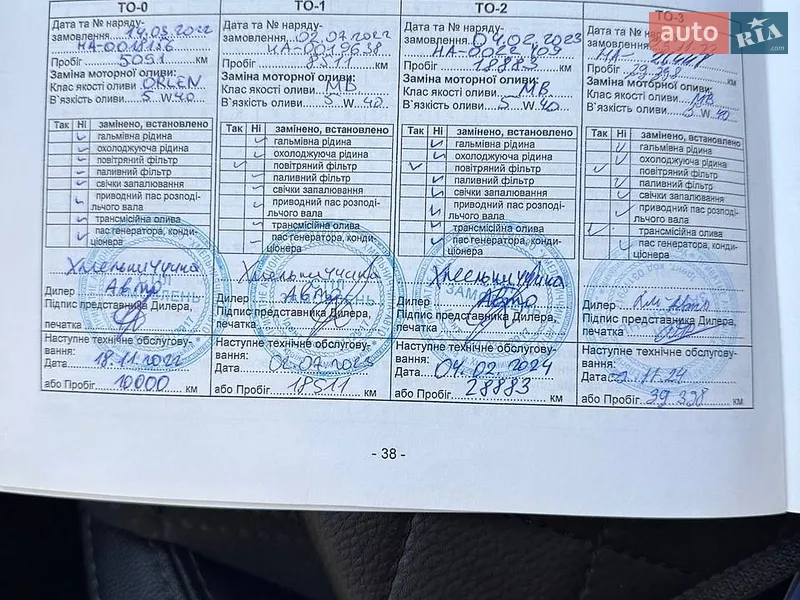 ТО-0
Дата та № наряду-
замовлення 14.03.2022
НА-0018186
Пробіг 5051 км
Заміна моторної оливи:
Клас якості оливи ORLEN
В`язкість оливи 5 W 40
Так Ні замінено, встановлено
гальмівна рідина
охолоджуюча рідина
повітряний фільтр
паливний фільтр
свічки запалювання
приводний пас розподі-
льчого вала
трансмісійна олива
пас генератора, конди-
ціонера
Хмельниччина
Дилер Авто
Підпис представника Дилера,
печатка
Наступне технічне обслугову-
вання:
Дата 18.11.2022
або Пробіг 10000 км
ТО-1
Дата та № наряду-
замовлення 02.07.2022
НА-0019638
Пробіг 8511 км
Заміна моторної оливи:
Клас якості оливи МВ
В`язкість оливи 5 W 40
Так Ні замінено, встановлено
гальмівна рідина
охолоджуюча рідина
повітряний фільтр
паливний фільтр
свічки запалювання
приводний пас розподі-
льчого вала
трансмісійна олива
пас генератора, конди-
ціонера
Хмельниччина
Дилер Авто
Підпис представника Дилера,
печатка
Наступне технічне обслугову-
вання:
Дата 02.07.2023
або Пробіг 18511 км
ТО-2
Дата та № наряду-
замовлення 04.02.2023
НА-0022409
Пробіг 18883 км
Заміна моторної оливи:
Клас якості оливи МВ
В`язкість оливи 5 W 40
Так Ні замінено, встановлено
гальмівна рідина
охолоджуюча рідина
повітряний фільтр
паливний фільтр
свічки запалювання
приводний пас розподі-
льчого вала
трансмісійна олива
пас генератора, конди-
ціонера
Хмельниччина
Дилер Авто
Підпис представника Дилера,
печатка
Наступне технічне обслугову-
вання:
Дата 04.02.2024
або Пробіг 28883 км
ТО-3
Дата та № наряду-
замовлення
НА
Пробіг 29398 км
Заміна моторної оливи:
Клас якості оливи МВ
В`язкість оливи 5 W 40
Так Ні замінено, встановлено
гальмівна рідина
охолоджуюча рідина
повітряний фільтр
паливний фільтр
свічки запалювання
приводний пас розподі-
льчого вала
трансмісійна олива
пас генератора, конди-
ціонера
Дилер Хм Авто
Підпис представника Дилера,
печатка
Наступне технічне обслугову-
вання:
Дата .11.24
або Пробіг 39398 км
- 38 -
auto RIA.com